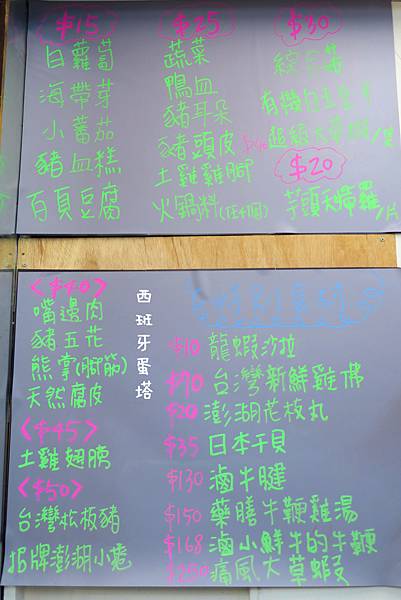 $15
白蘿蔔
海帶芽
小蕃茄
豬血糕
百頁豆腐
$25
蔬菜
鴨血
豬耳朵
豬頭皮
土雞雞腳
火鍋料(任4個)
$30
$20
芋頭天婦羅/片
<$40>
嘴邊肉
豬五花
熊掌(腳筋)
天然腐皮
<$45>
土雞翅膀
<$50>
台灣松板豬
招牌澎湖小卷
西班牙蛋塔
$10 龍蝦沙拉
$70 台灣新鮮雞佛
$20 澎湖花枝丸
$35 日本干貝
$130 滷牛腱
$150 藥膳牛鞭雞湯
$168 滷小鮮牛的牛鞭
$250 痛風大草蝦